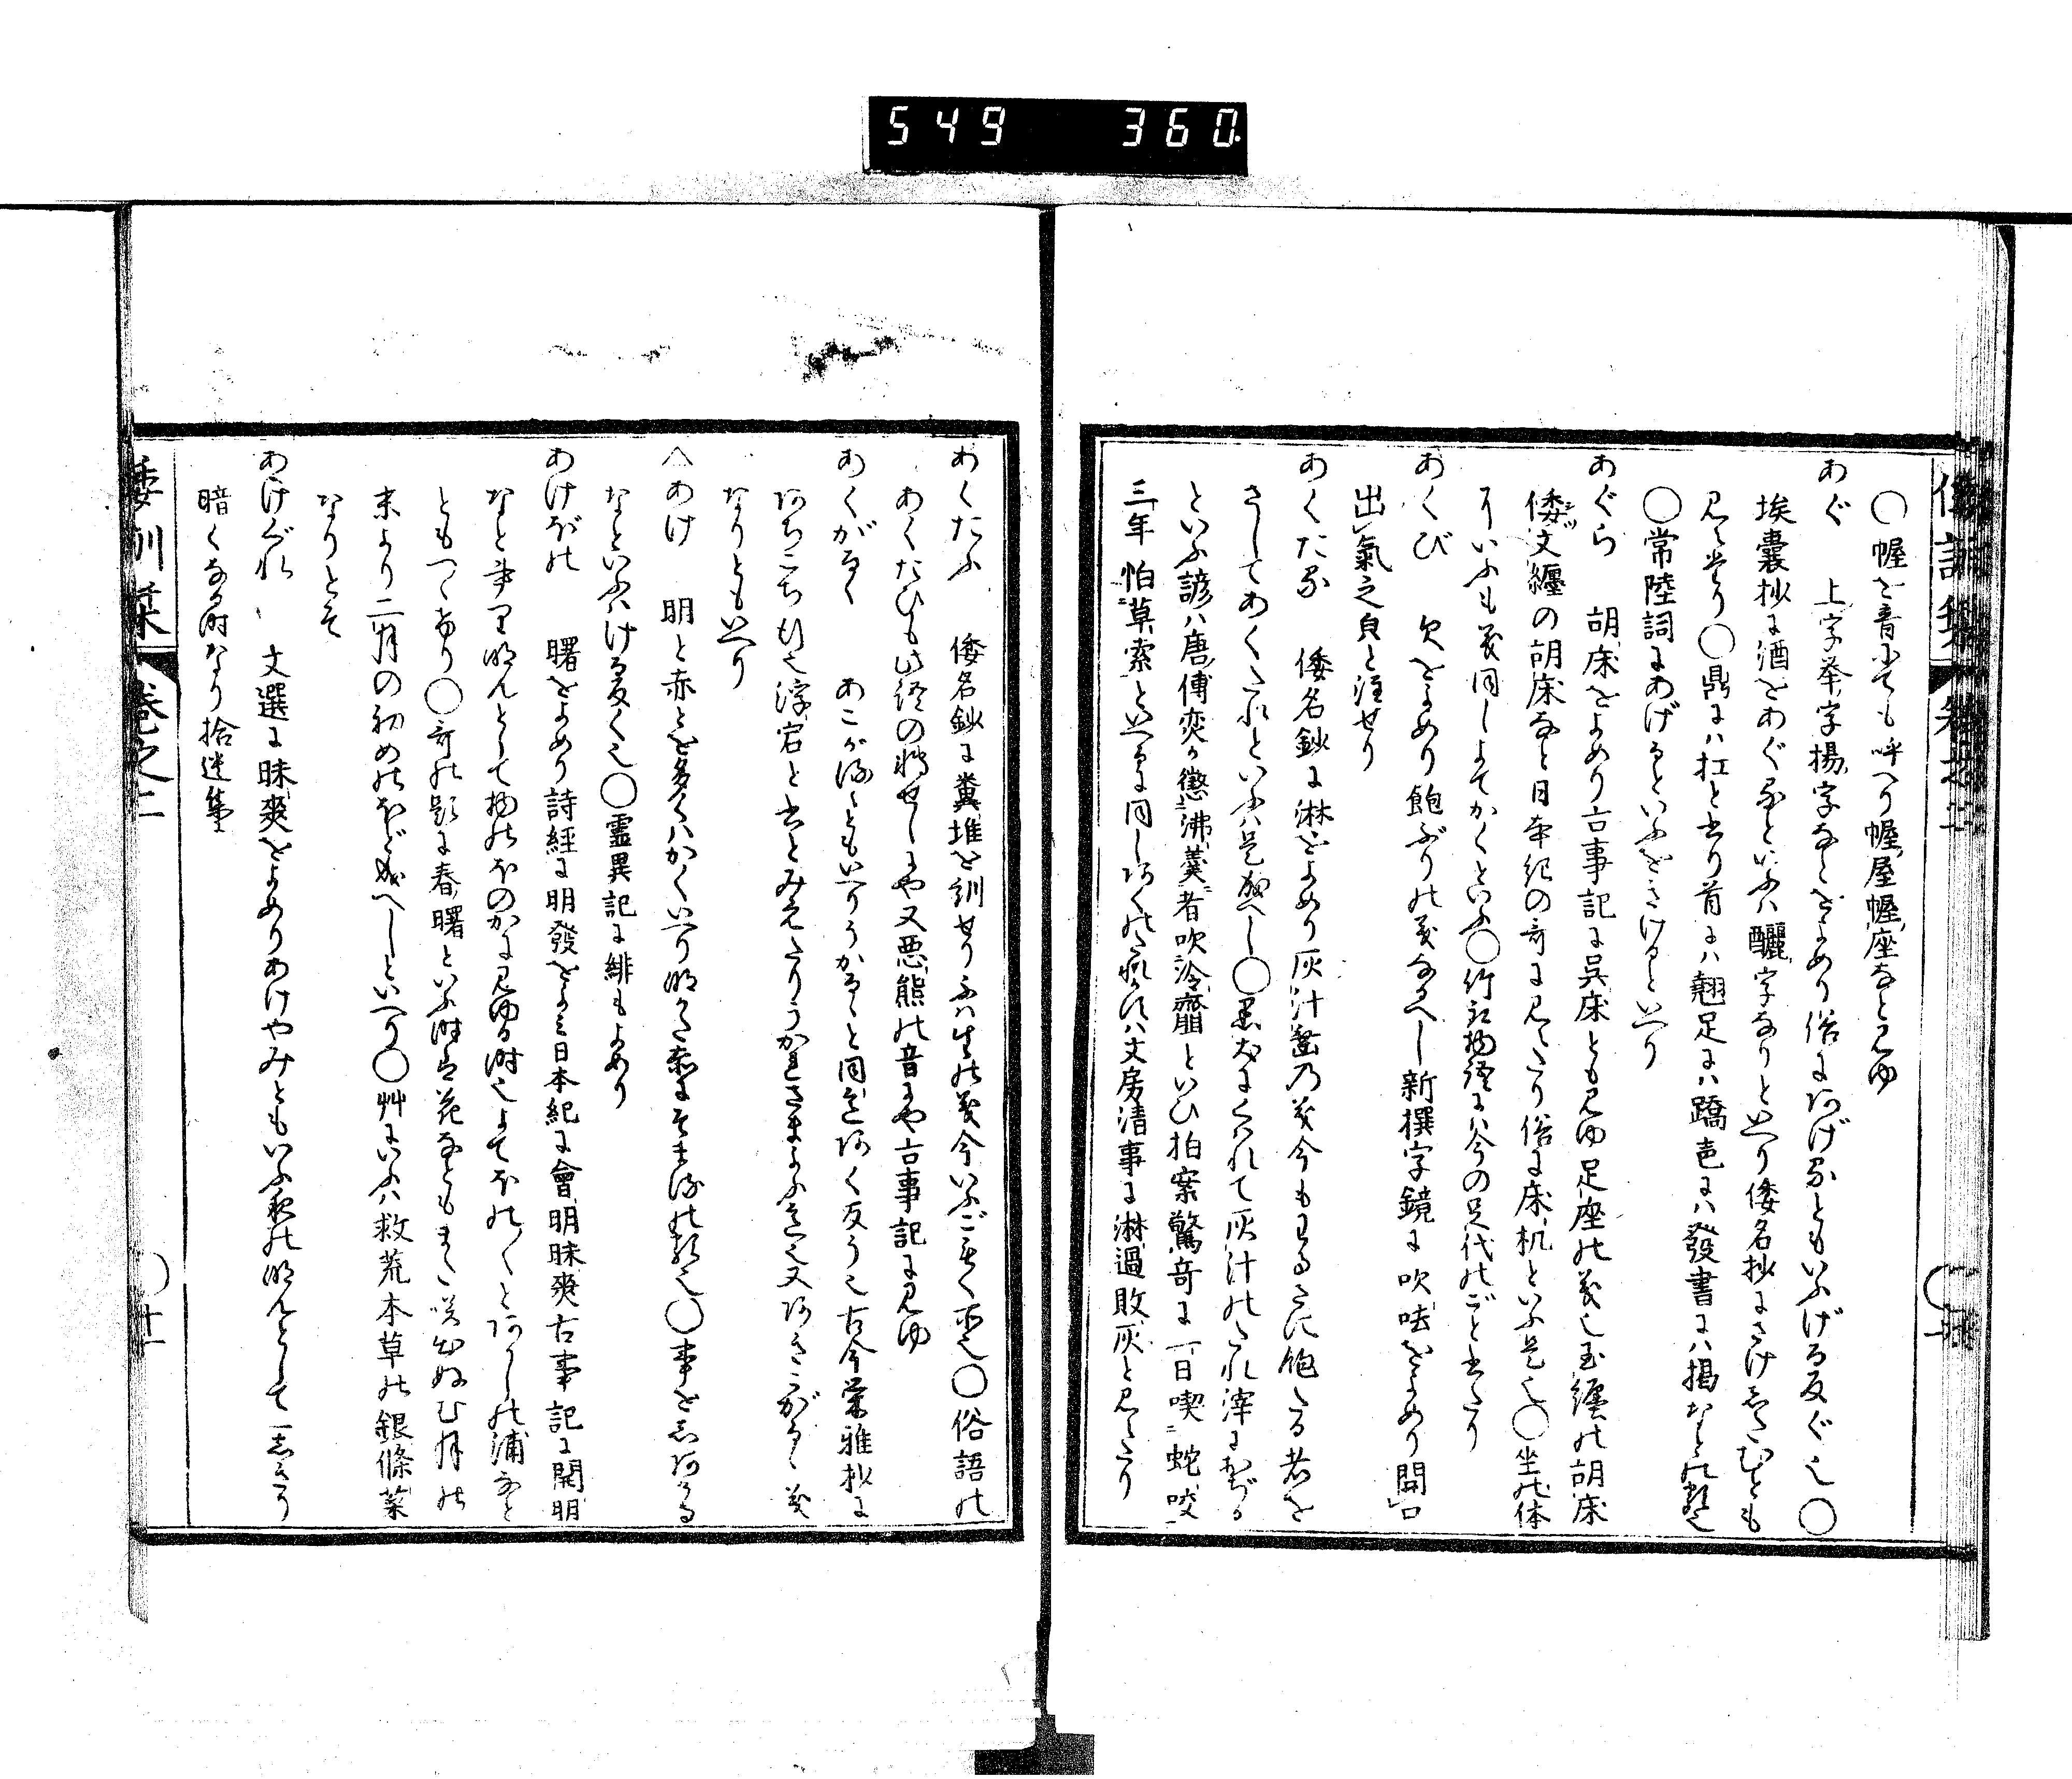 549 360
〇幄を音にても呼へり幄屋幄座なと見ゆ
あぐ 上字挙字揚字なとをよめり俗にあげるともいふげる反ぐ也〇
埃嚢抄に酒をあぐるといふハ釃字なりといへり倭名抄にさけしたむとも
見えたり〇鼎にハ扛と書り首にハ翹足にハ蹻色にハ發書にハ掲なとの類也
〇常陸詞にあげるといふをさけるといへり
あぐら 胡床をよめり古事記に呉床とも見ゆ足座の義也玉纏の胡床
倭文纏の胡床なと日本紀の哥に見えたり俗に床机といふ是也〇坐の体
をいふも義同しよてかくといふ〇竹取物語にハ今の足代のごと書たり
あくび 欠をよめり飽ぶりの義なるへし新撰字鏡に吹呿をよめり開口
出氣之貌と注せり
あくたる 倭名鈔に淋をよめり灰汁垂乃義今もわるさに飽たる者を
さしてあくたれといふハ是なるへし〇
といふ諺ハ唐傅奕か懲沸羹者吹冷齏といひ拍案驚奇に一日喫蛇咬
三年怕草索といへるに同しあくのたれかすハ文房清事に淋過敗灰と見えたり
倭訓栞 巻之二 〇十一
あくたふ 倭名鈔に糞堆を訓せりふハ生の義今いふごもく也〇俗語の
あくたひも此語の轉せしにや又悪態の音にや古事記に見ゆ
あくがるゝ あこがるゝともいへりうかるゝと同意あく反う也古今榮雅抄に
あちこち行也浮宕と書とみえたりうかれさまよふ意又あきこがるゝ義
なりともいへり
へあけ 明と赤とを多くハかくいへり明ると赤にそまるの類也〇事をしあくる
なといふハける反く也〇靈異記に緋もよめり
あけぼの 曙をよめり詩経に明發をよみ日本紀に會明昧爽古事記に開明
なと書り明んとして物のほのかに見ゆる時也よてほのゝとあかしの浦なと
ともつゝけり〇哥の題に春曙といふ時は花なともまた咲出ぬむ月の
末より二月の初めのほど成へしといへり〇艸にいふハ救荒本草の銀條菜
なりとそ
あけぐれ 文選に昧爽をよめりあけやみともいふ夜の明んとして一しきり
暗くなる時なり拾遺集